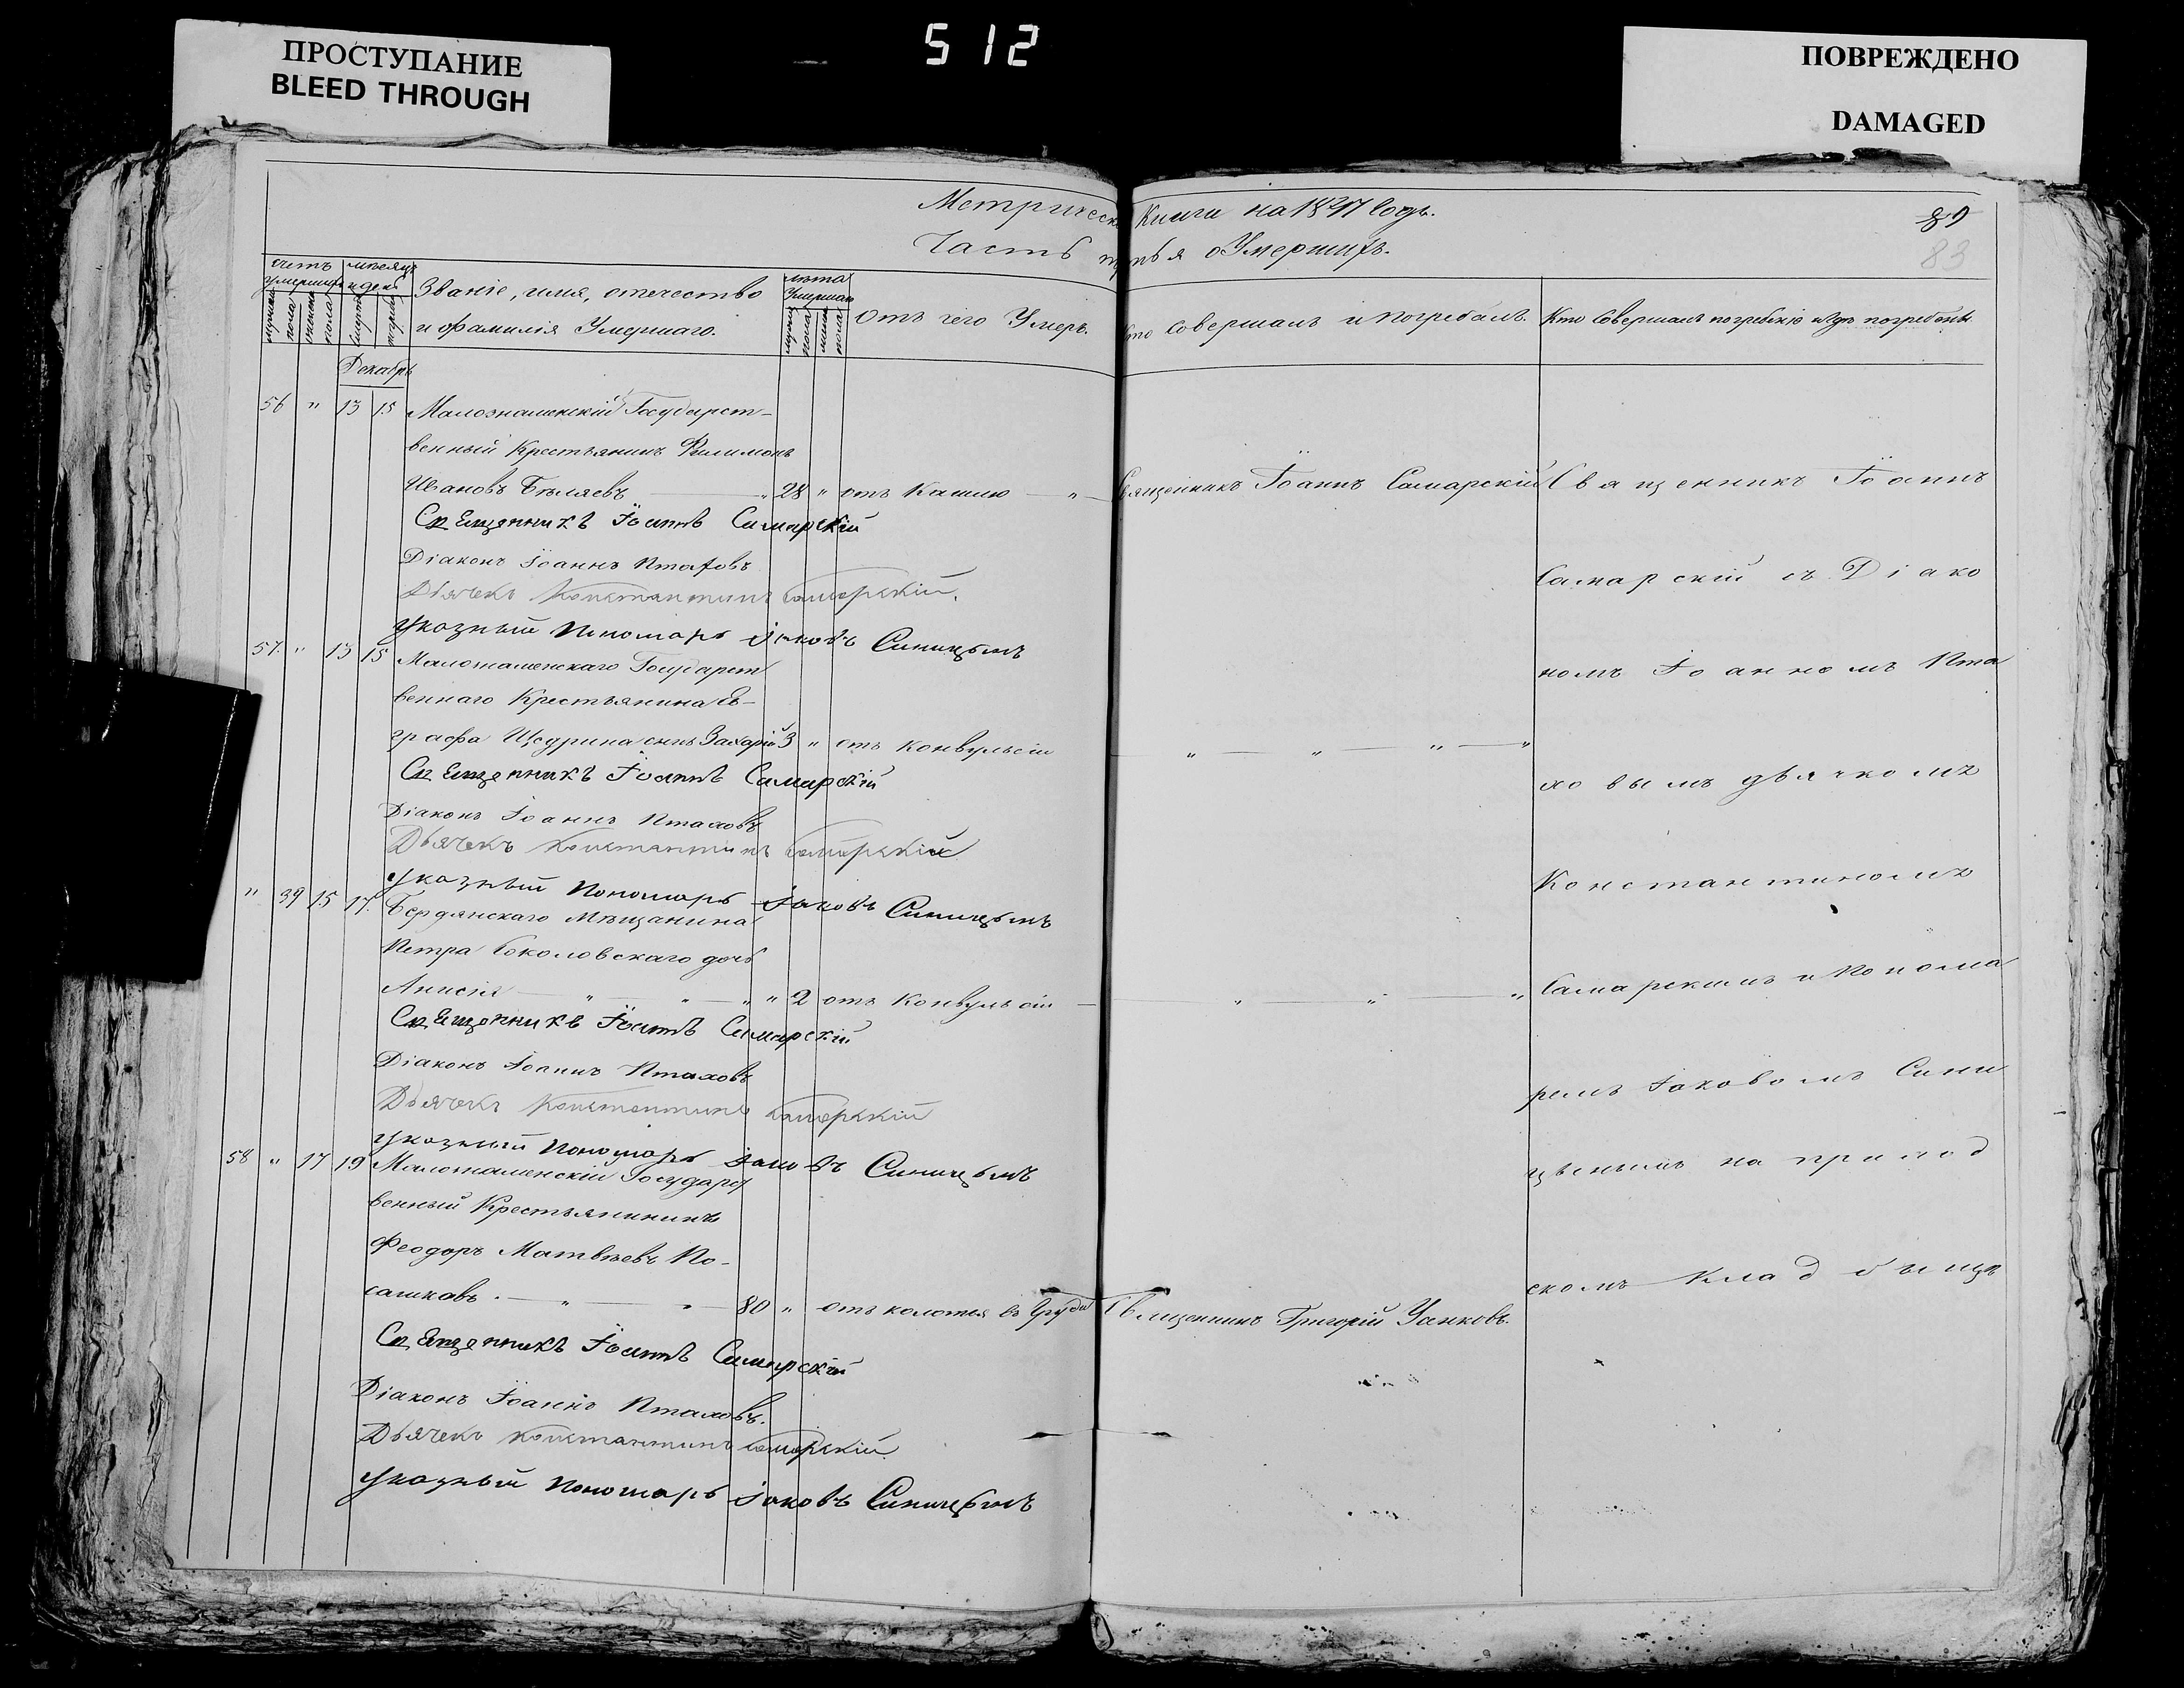 ПРОСТУПАНИЕ
BLEED THROUGH
512
ПОВРЕЖДЕНО
DAMAGED
Книги на 1847 Годъ.
89
Часть третья о Умершихъ.
83
счетъ умершихъ
мѣсяцъ и день
Званіе, имя, отечество
и фамилія Умершаго.
лѣта Умершаго
Отъ чего Умеръ.
Кто Совершалъ погребеніе и гдѣ погребены.
Декабрь
56 " 13 15 Малознаменскій Государст-
венный Крестьянинъ Филимонъ
Ивановъ Бѣляевъ " 28 " отъ Кашлю " Священникъ Іоаннъ Самарскій
Священникъ Іоаннъ Самарскій
Діаконъ Іоаннъ Птаховъ
Дьячекъ Константинъ Самарскій.
указный Пономарь Іаковъ Синицынъ
57. " 13 15 Малознаменскаго Государст
веннаго Крестьянина Ев-
графа Щедрина сынъ Захарій 3 " отъ Конвульсіи " " " "
Священникъ Іоаннъ Самарскій
Діаконъ Іоаннъ Птаховъ
Дьячекъ Константинъ Самарскій
указный Пономарь Іаковъ Синицынъ
" 39 15 17. Бердянскаго Мѣщанина
Петра Соколовскаго дочь
Анисія " " " " 2 отъ Конвульсіи " " "
Священникъ Іоаннъ Самарскій
Діаконъ Іоаннъ Птаховъ
Дьячекъ Константинъ Самарскій
указный Пономарь Іаковъ Синицынъ
58 " 17 19 Малознаменскій Государст
венный Крестьянининъ
Феодоръ Матвѣевъ По-
сашковъ. " " 80 " отъ колотья въ Груди Священникъ Григорій
Священникъ Іоаннъ Самарскій
Діаконъ Іоаннъ Птаховъ.
Дьячекъ Константинъ Самарскій
указный Пономарь Іаковъ Синицынъ
Священникъ Іоаннъ
Самарскій съ Діако
номъ Іоанномъ Пта
ховымъ дьячкомъ
Константиномъ
Самарскимъ и Понома
ремъ Іаковомъ Сини
цынымъ на приход
скомъ Кладбищѣ